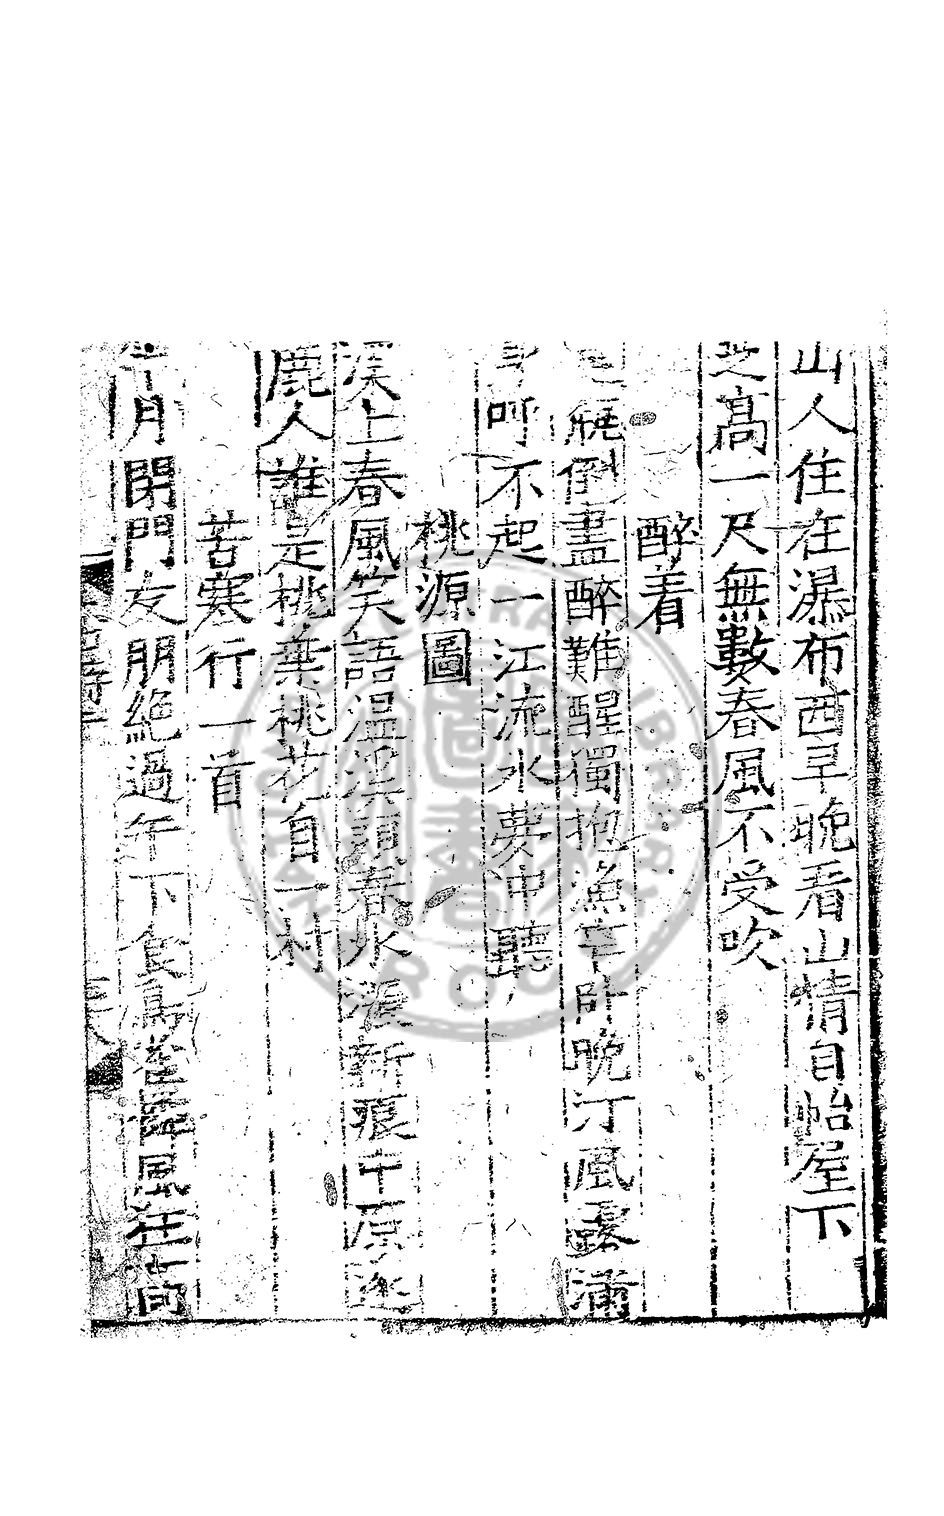 山人住在瀑布西早晚看山情自怡屋下
芝高一尺無數春風不受吹
醉着
瓶倒盡醉難醒獨抱漁竿卧晚汀風露滿
身呼不起一江流水夢中聽
桃源圖
溪上春風笑語温溪頭春水漲新痕中原逐
鹿人誰是桃葉桃花自一村
苦寒行一首
年月閉門友朋絶過午下食烏
風在